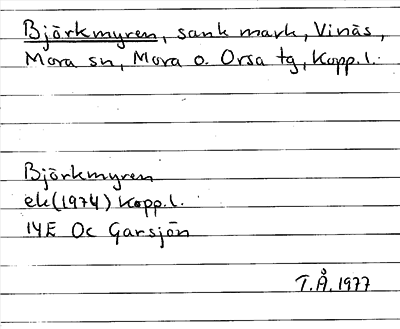 Björkmyren, sank mark, Vinäs,
Mora sn, Mora o. Orsa tg, Kopp. l.
Björkmyren
ek (1974) Kopp. l.
14E Oc Garsjön
T.Å. 1977